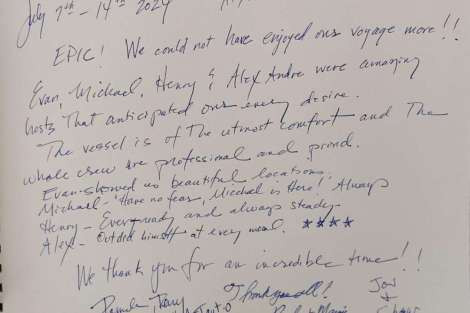 July 7th - 14th 2024
EPIC! We could not have enjoyed our voyage more!!
Evan, Michael, Henry & Alex Andre were amazing
hosts That anticipated our every desire.
The vessel is of The utmost comfort and The
whole crew are professional and proud.
Evan-showed us beautiful locations.
Michael-'Have no fear, Micheal is Here! Always
Henry - Ever ready and always steady.
Alex - Outdid himself at every meal. ****
We thank you for an incredible time!!
Pamela Terry Thank you all! Jon